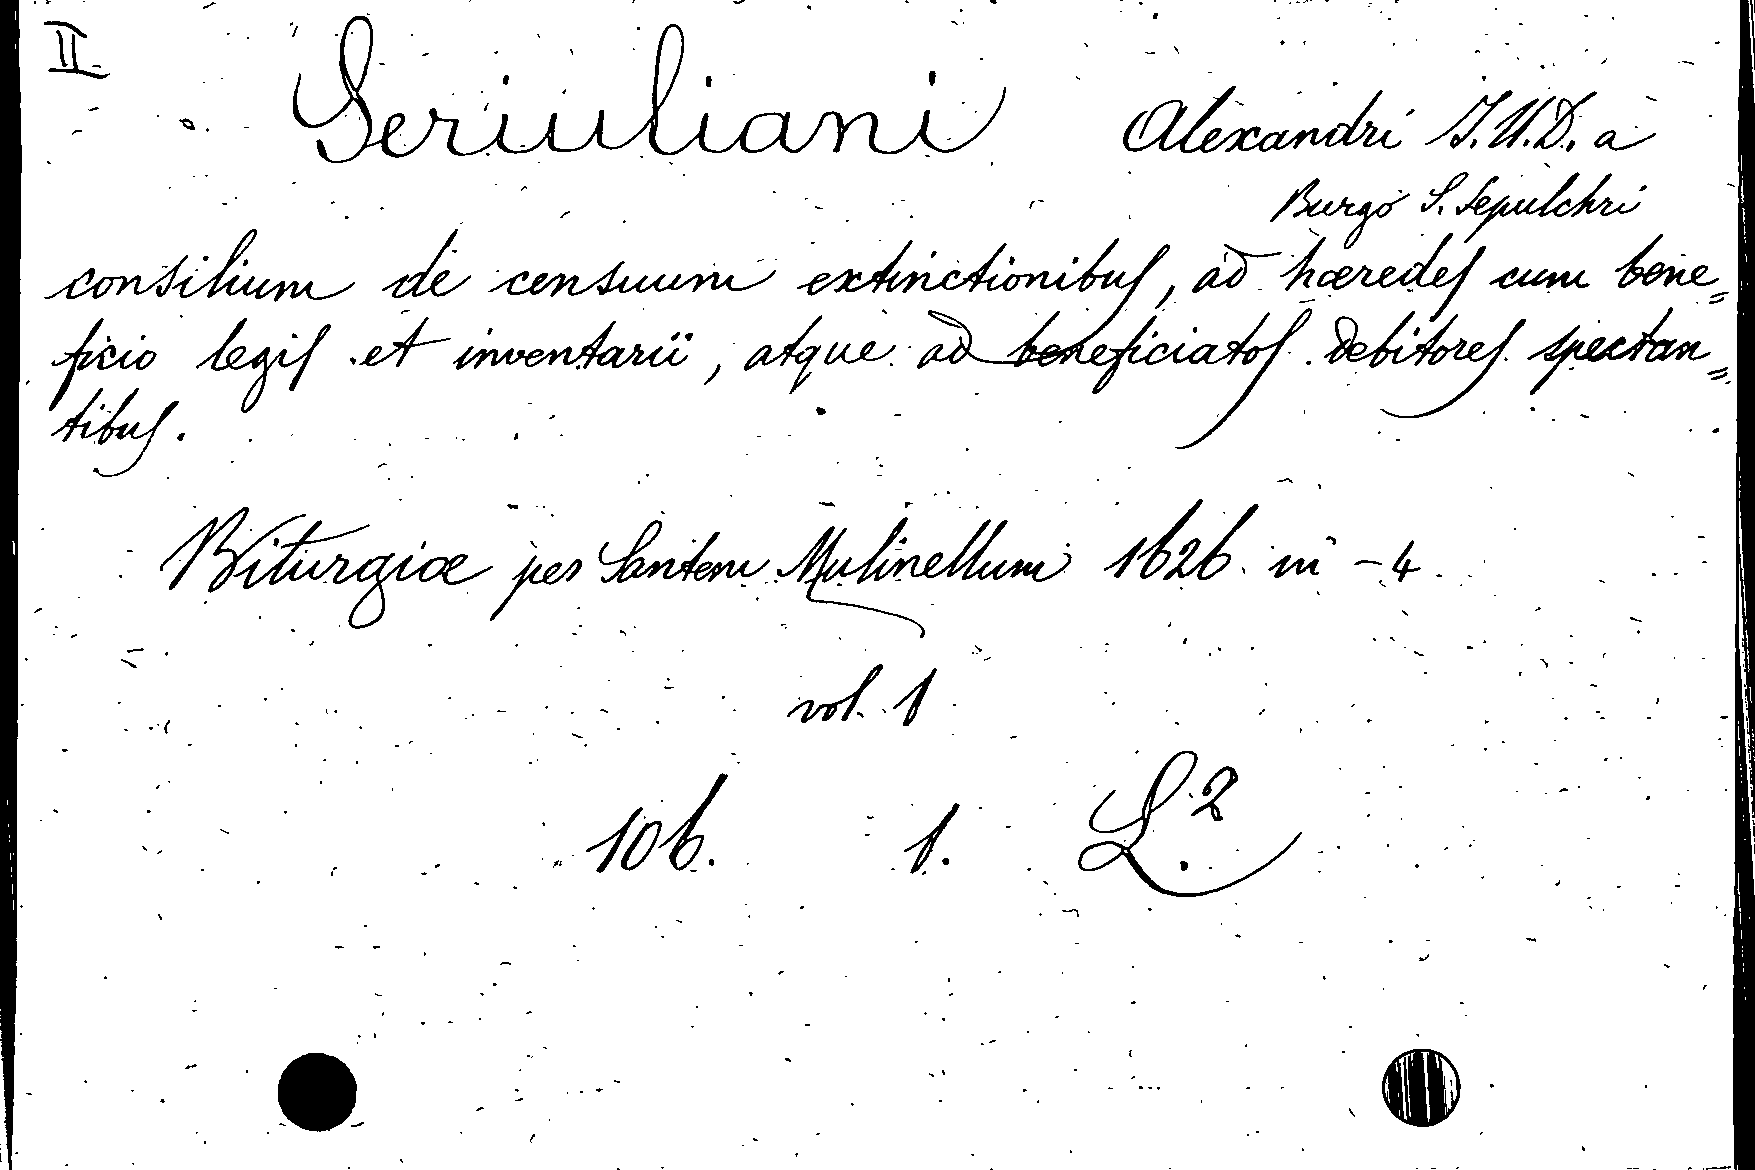 II
Seriuliani Alexandri J.U.D. a
Burgo S. Sepulchri
consilium de censuum extinctionibus, ad hæredes cum bene=
ficio legis et inventarii, atque ad beneficiatos debitores spectan=
tibus.
Biturgiæ per Santem Mulinellum 1626 in -4
vol. 1
106. 1. L.2